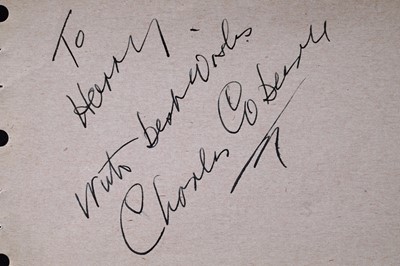 To
Henry.
With best wishes
Charles Coburn